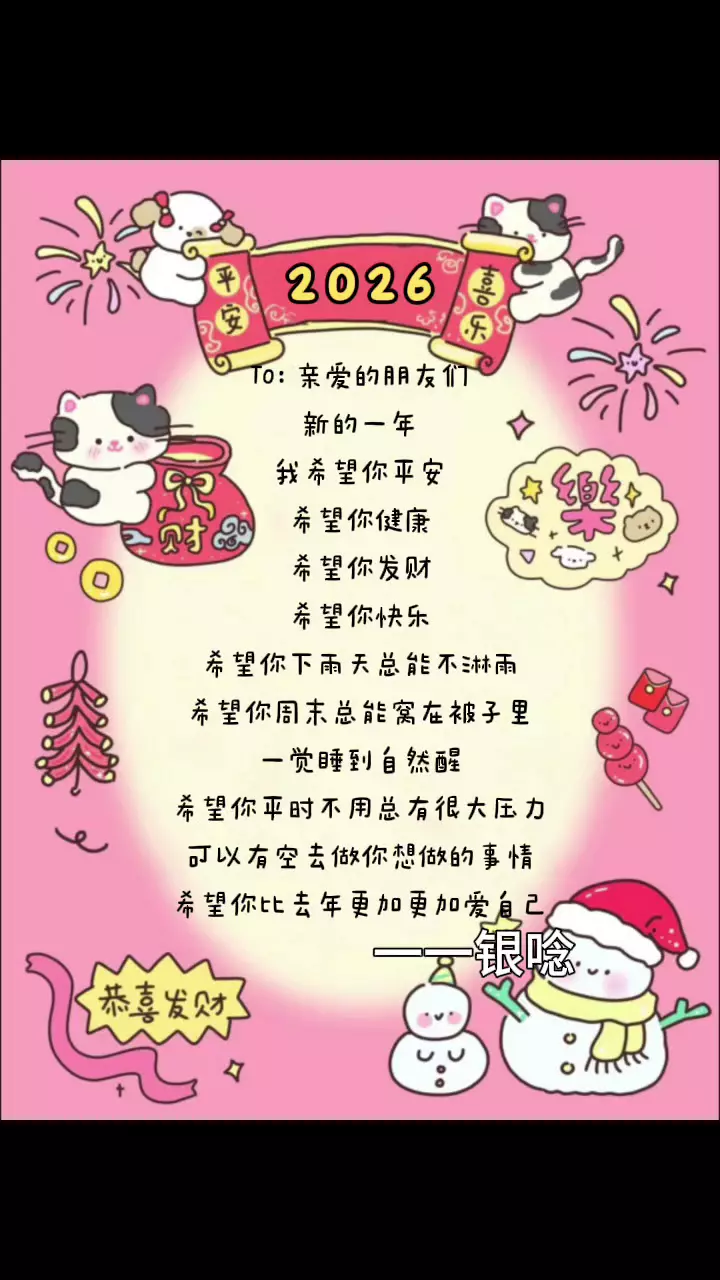 2026
平安
喜乐
To: 亲爱的朋友们
新的一年
我希望你平安
希望你健康
希望你发财
希望你快乐
希望你下雨天总能不淋雨
希望你周末总能窝在被子里
一觉睡到自然醒
希望你平时不用总有很大压力
可以有空去做你想做的事情
希望你比去年更加更加爱自己
——银唸
财
樂
恭喜发财